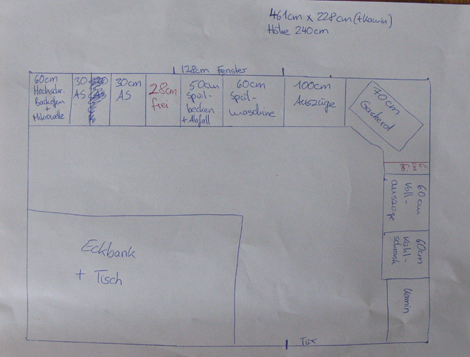 461cm x 228cm (+Kamin)
Höhe 240cm
128cm Fenster
60cm
Hochschr.
Backofen
+
Mikrowelle
30
AS
30cm
AS
28cm
frei
50cm
Spül-
becken
+ Abfall
60cm
Spül-
maschine
100cm
Auszüge
70cm
Gasherd
60cm
Voll-
auszüge
60cm
Kühl-
schrank
Kamin
Eckbank
+ Tisch
Tür